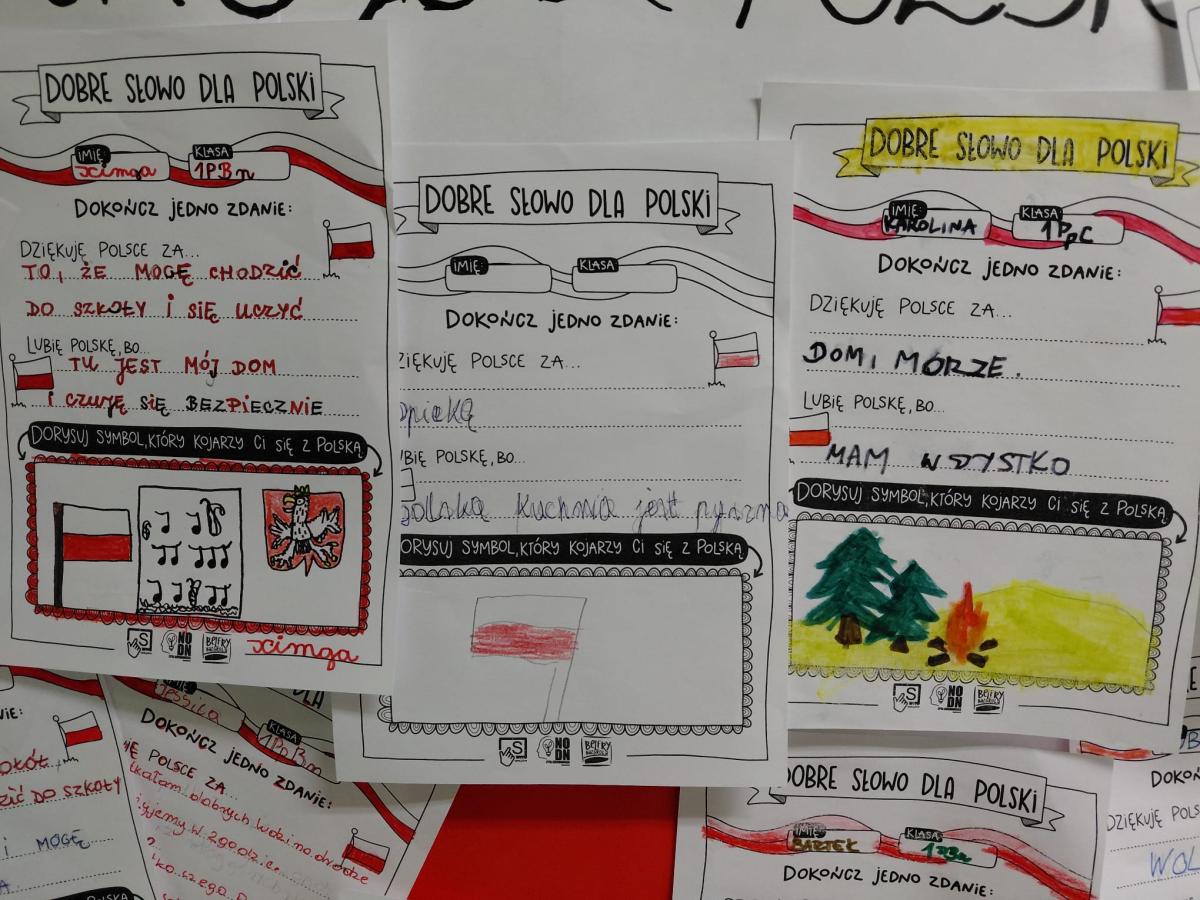 DOBRE SŁOWO DLA POLSKI
IMIĘ:
KLASA
1PBn
DOKOŃCZ JEDNO ZDANIE:
DZIĘKUJĘ POLSCE ZA...
TO, ŻE MOGĘ CHODZIĆ
DO SZKOŁY I SIĘ UCZYĆ
LUBIĘ POLSKĘ, BO...
TU JEST MÓJ DOM
I CZUJĘ SIĘ BEZPIECZNIE
DORYSUJ SYMBOL, KTÓRY KOJARZY CI SIĘ Z POLSKĄ
S
NO
DN
BEJERY
DOBRE SŁOWO DLA POLSKI
IMIĘ:
KLASA:
DOKOŃCZ JEDNO ZDANIE:
DZIĘKUJĘ POLSCE ZA...
opiekę
BIĘ POLSKĘ, BO...
polska kuchnia jest pyszna
DORYSUJ SYMBOL, KTÓRY KOJARZY CI SIĘ Z POLSKĄ
S
NO
DN
BEJERY
DOBRE SŁOWO DLA POLSKI
IMIĘ:
KAROLINA
KLASA:
1PpC
DOKOŃCZ JEDNO ZDANIE:
DZIĘKUJĘ POLSCE ZA...
DOM I MORZE.
LUBIĘ POLSKĘ, BO...
MAM WSZYSTKO
DORYSUJ SYMBOL, KTÓRY KOJARZY CI SIĘ Z POLSKĄ
S
NO
DN
BEJERY
DO SZKOŁY
I MOGĘ
KLASA:
DOKOŃCZ JEDNO ZDANIE:
POLSCE ZA...
na drodze
w zgodzie
DOBRE SŁOWO DLA POLSKI
IMIĘ:
BARTEK
KLASA:
DOKOŃCZ JEDNO ZDANIE:
DZIĘKUJĘ
WOL